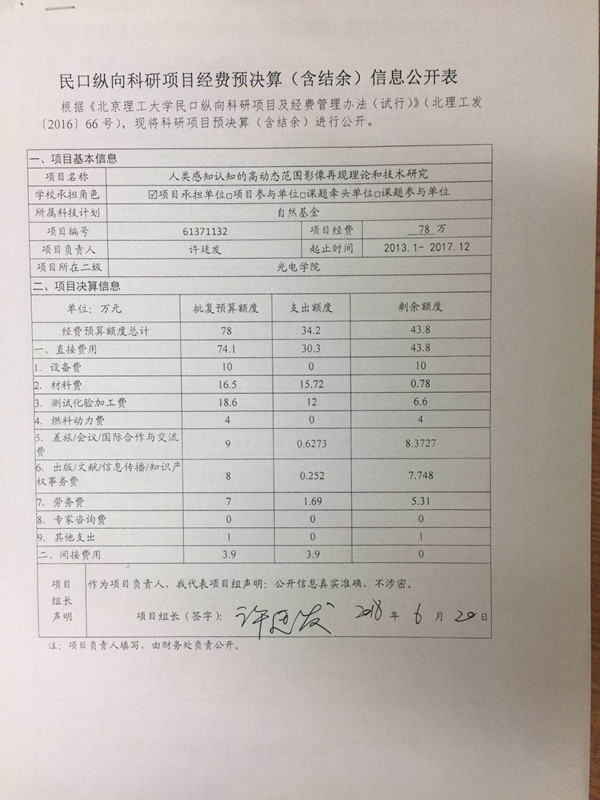 民口纵向科研项目经费预决算（含结余）信息公开表
根据《北京理工大学民口纵向科研项目及经费管理办法（试行）》（北理工发
〔2016〕66号），现将科研项目预决算（含结余）进行公开。
一、项目基本信息
项目名称 人类感知认知的高动态范围影像再现理论和技术研究
学校承担角色 ☑项目承担单位□项目参与单位□课题牵头单位□课题参与单位
所属科技计划 自然基金
项目编号 61371132 项目经费 78 万
项目负责人 许廷发 起止时间 2013.1- 2017.12
项目所在二级 光电学院
二、项目决算信息
单位：万元 批复预算额度 支出额度 剩余额度
经费预算额度总计 78 34.2 43.8
一、直接费用 74.1 30.3 43.8
1. 设备费 10 0 10
2. 材料费 16.5 15.72 0.78
3. 测试化验加工费 18.6 12 6.6
4. 燃料动力费 4 0 4
5. 差旅/会议/国际合作与交流
费 9 0.6273 8.3727
6. 出版/文献/信息传播/知识产
权事务费 8 0.252 7.748
7. 劳务费 7 1.69 5.31
8. 专家咨询费 0 0 0
9. 其他支出 1 0 1
二、间接费用 3.9 3.9 0
项目
组长
声明
作为项目负责人，我代表项目组声明：公开信息真实准确，不涉密。
项目组长（签字）：许廷发 2018 年 6 月 20 日
注：项目负责人填写，由财务处负责公开。